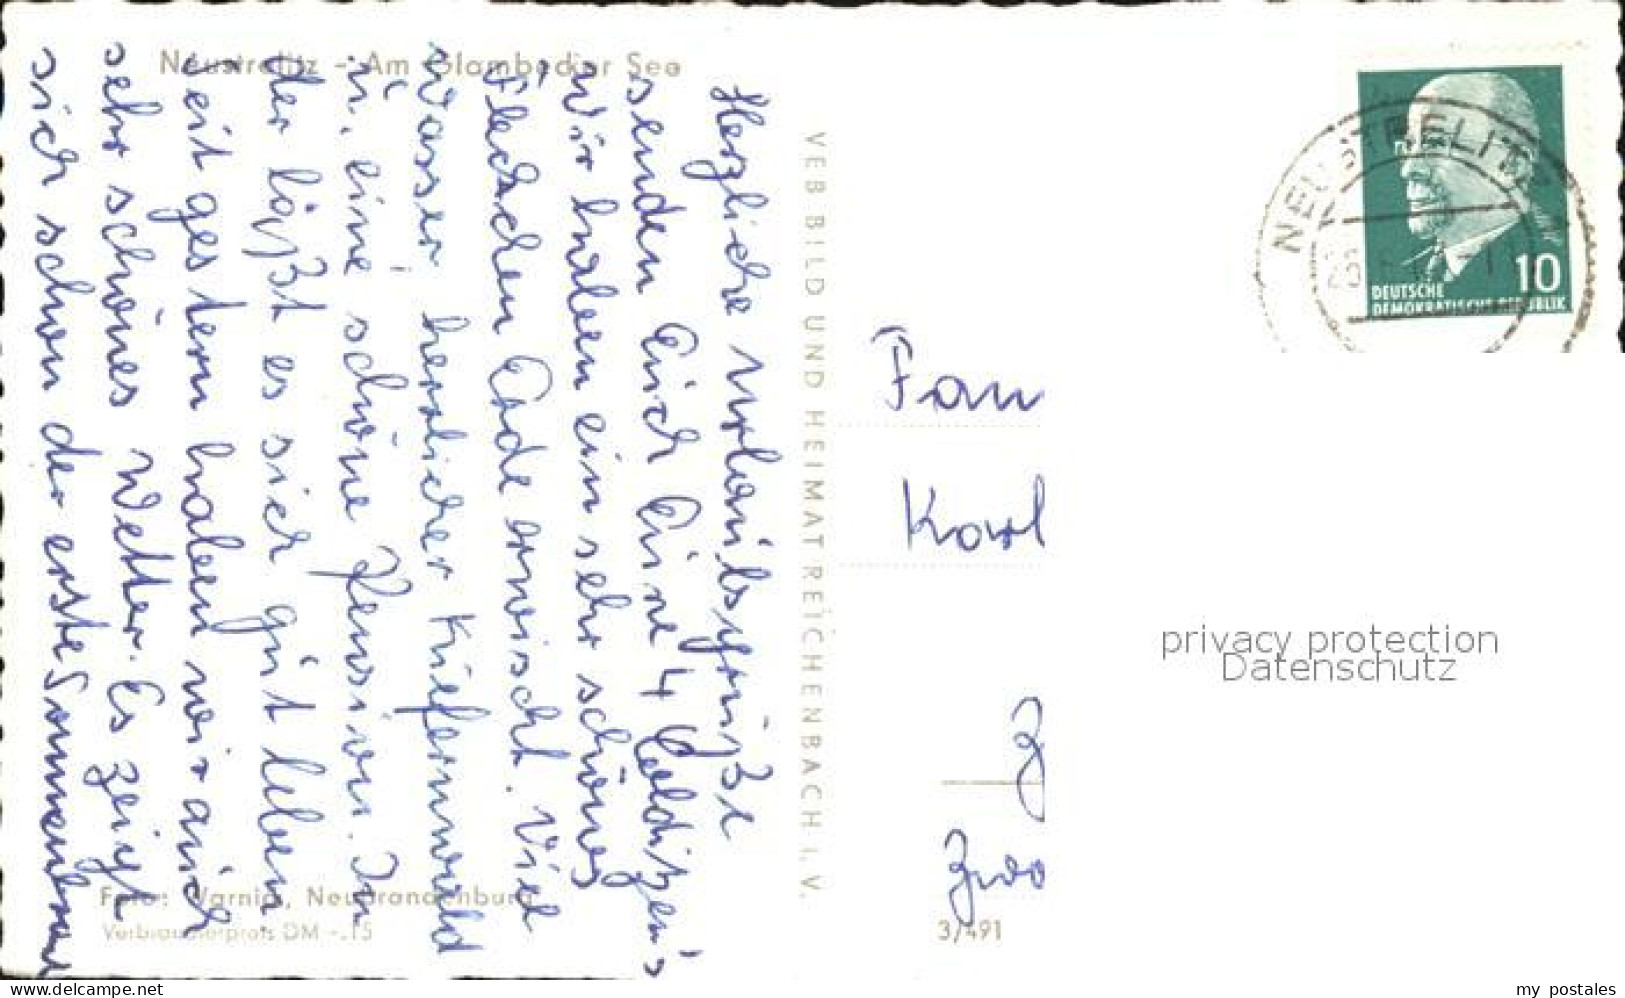 Neustrelitz - Am Glambecker See
Herzliche Urlaubsgrüße
senden Euch Eure 4
Wir haben ein sehr schönes
Fleckchen Erde erwischt. Viel
Wasser, herrlicher Kiefernwald
u. eine schöne Pension. In
der läßt es sich gut leben.
Seit gestern haben wir auch
sehr schönes Wetter. Es zeigt
sich schon der erste Sonnenbrand
Foto: Warnig, Neubrandenburg
Verbraucherpreis DM -.15
VEB BILD UND HEIMAT REICHENBACH I. V.
NEUSTRELITZ
10
DEUTSCHE
DEMOKRATISCHE REPUBLIK
Fam
Karl
3/491
privacy protection
Datenschutz
www.delcampe.net
my_postales